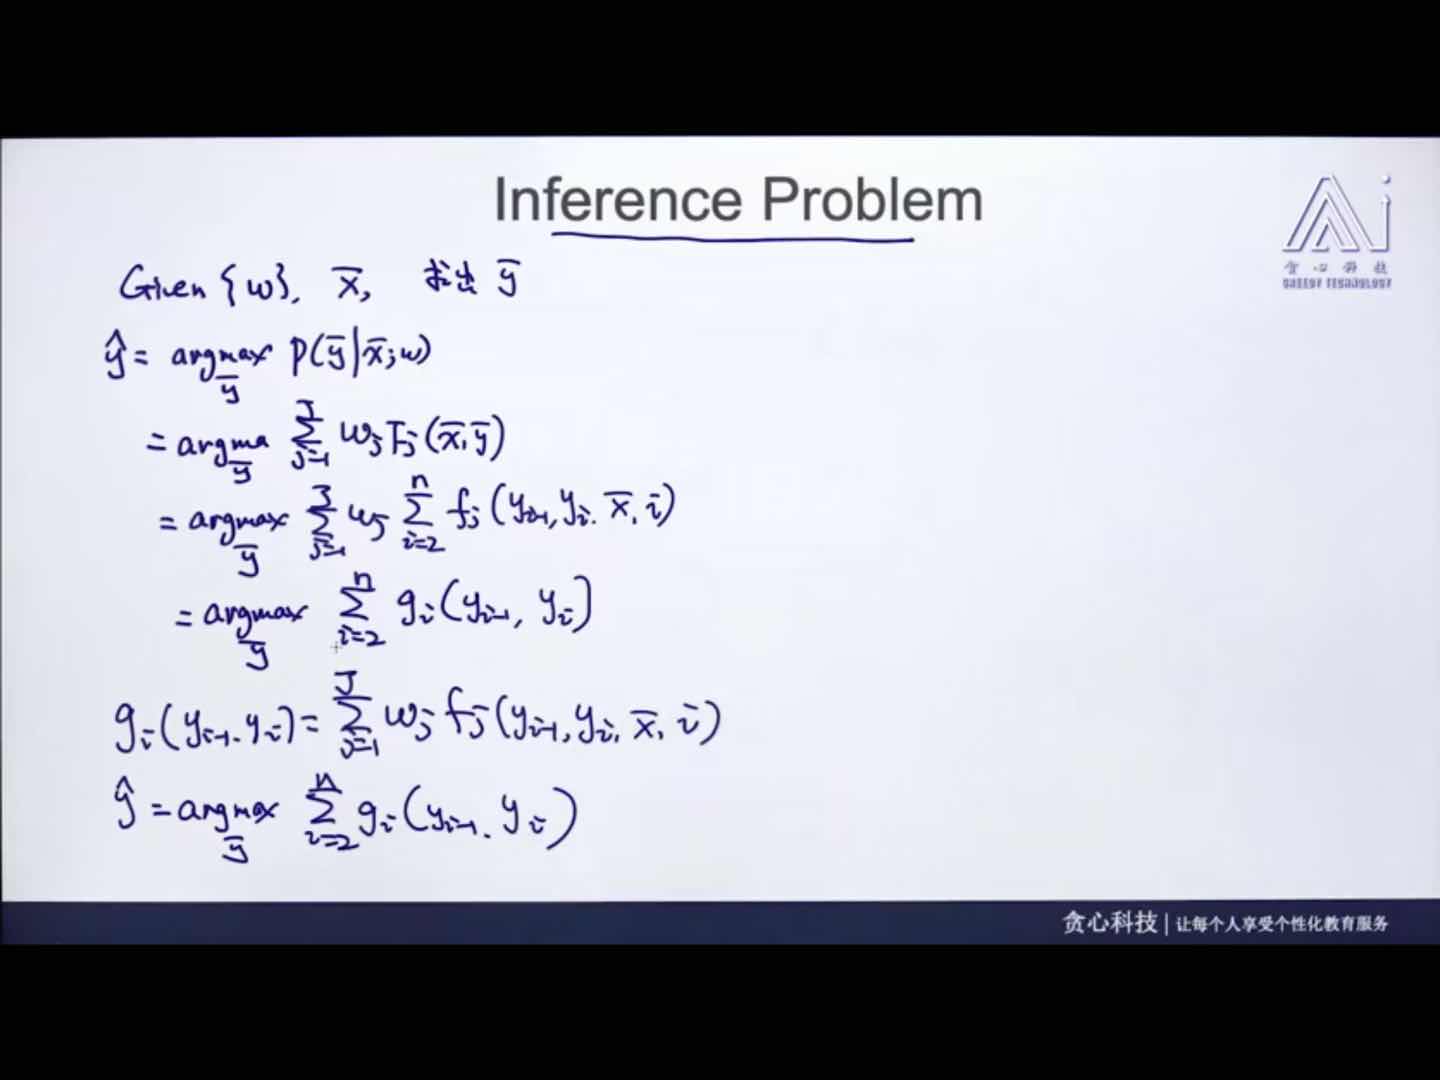 Inference Problem
贪心科技
GREEDY TECHNOLOGY
Given {w}, x̄, 求出 ȳ
ŷ = argmax_ȳ P(ȳ|x̄;w)
= argma_ȳ Σ_{j=1}^{J} w_j F_j(x̄,ȳ)
= argmax_ȳ Σ_{j=1}^{J} w_j Σ_{i=2}^{n} f_j(y_{i-1}, y_i, x̄, i)
= argmax_ȳ Σ_{i=2}^{n} g_i(y_{i-1}, y_i)
g_i(y_{i-1}, y_i) = Σ_{j=1}^{J} w_j f_j(y_{i-1}, y_i, x̄, i)
ŷ = argmax_ȳ Σ_{i=2}^{n} g_i(y_{i-1}, y_i)
贪心科技 | 让每个人享受个性化教育服务